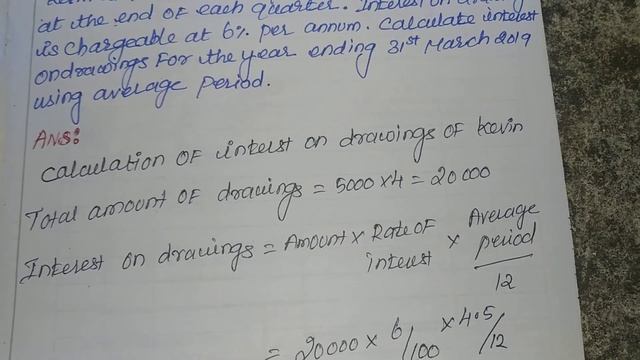 at the end of each quarter. Interest on
is chargeable at 6% per annum. Calculate interest
on drawings For the year ending 31st March 2019
using average period.
Ans:
Calculation of interest on drawings of Kevin
Total amount of drawings = 5000 x 4 = 20000
Interest on drawings = Amount x Rate of interest x Average period / 12
= 20000 x 6/100 x 4.5/12